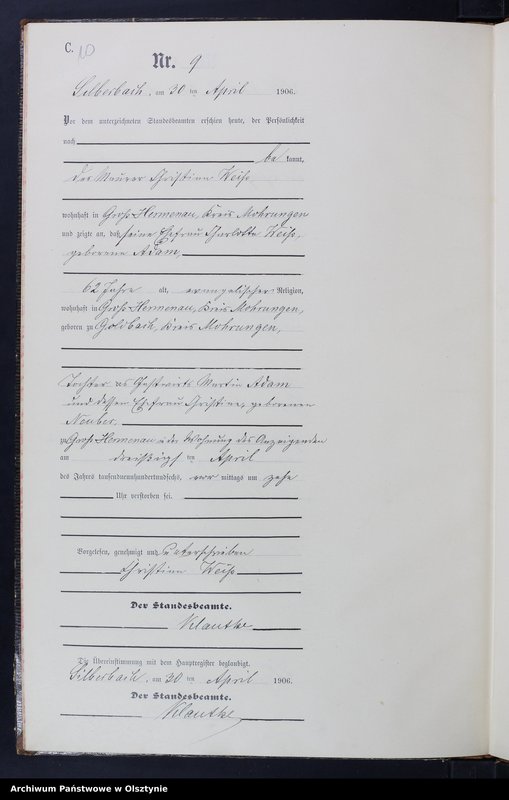 C.
10
Nr. 9
Silberbach, am 30 ten April 1906.
Vor dem unterzeichneten Standesbeamten erschien heute, der Persönlichkeit
nach
be kannt,
der Maurer Christian Weiß
wohnhaft in Groß Hermenau, Kreis Mohrungen
und zeigte an, daß seine Ehefrau Charlotte Weiß,
geborene Adam,
62 Jahre alt, evangelischer Religion,
wohnhaft in Groß Hermenau, Kreis Mohrungen,
geboren zu Goldbach, Kreis Mohrungen,
Tochter es Gastwirts Martin Adam
und dessen Ehefrau Christine, geborenen
Neuber,
zu Groß Hermenau in der Wohnung des Anzeigenden
am dreißigst ten April
des Jahres tausendneunhundertundsechs, vor mittags um zehn
Uhr verstorben sei.
Vorgelesen, genehmigt und unterschrieben
Christian Weiß
Der Standesbeamte.
Klautke
Die Übereinstimmung mit dem Hauptregister beglaubigt.
Silberbach, am 30 ten April 1906.
Der Standesbeamte.
Klautke
Archiwum Państwowe w Olsztynie